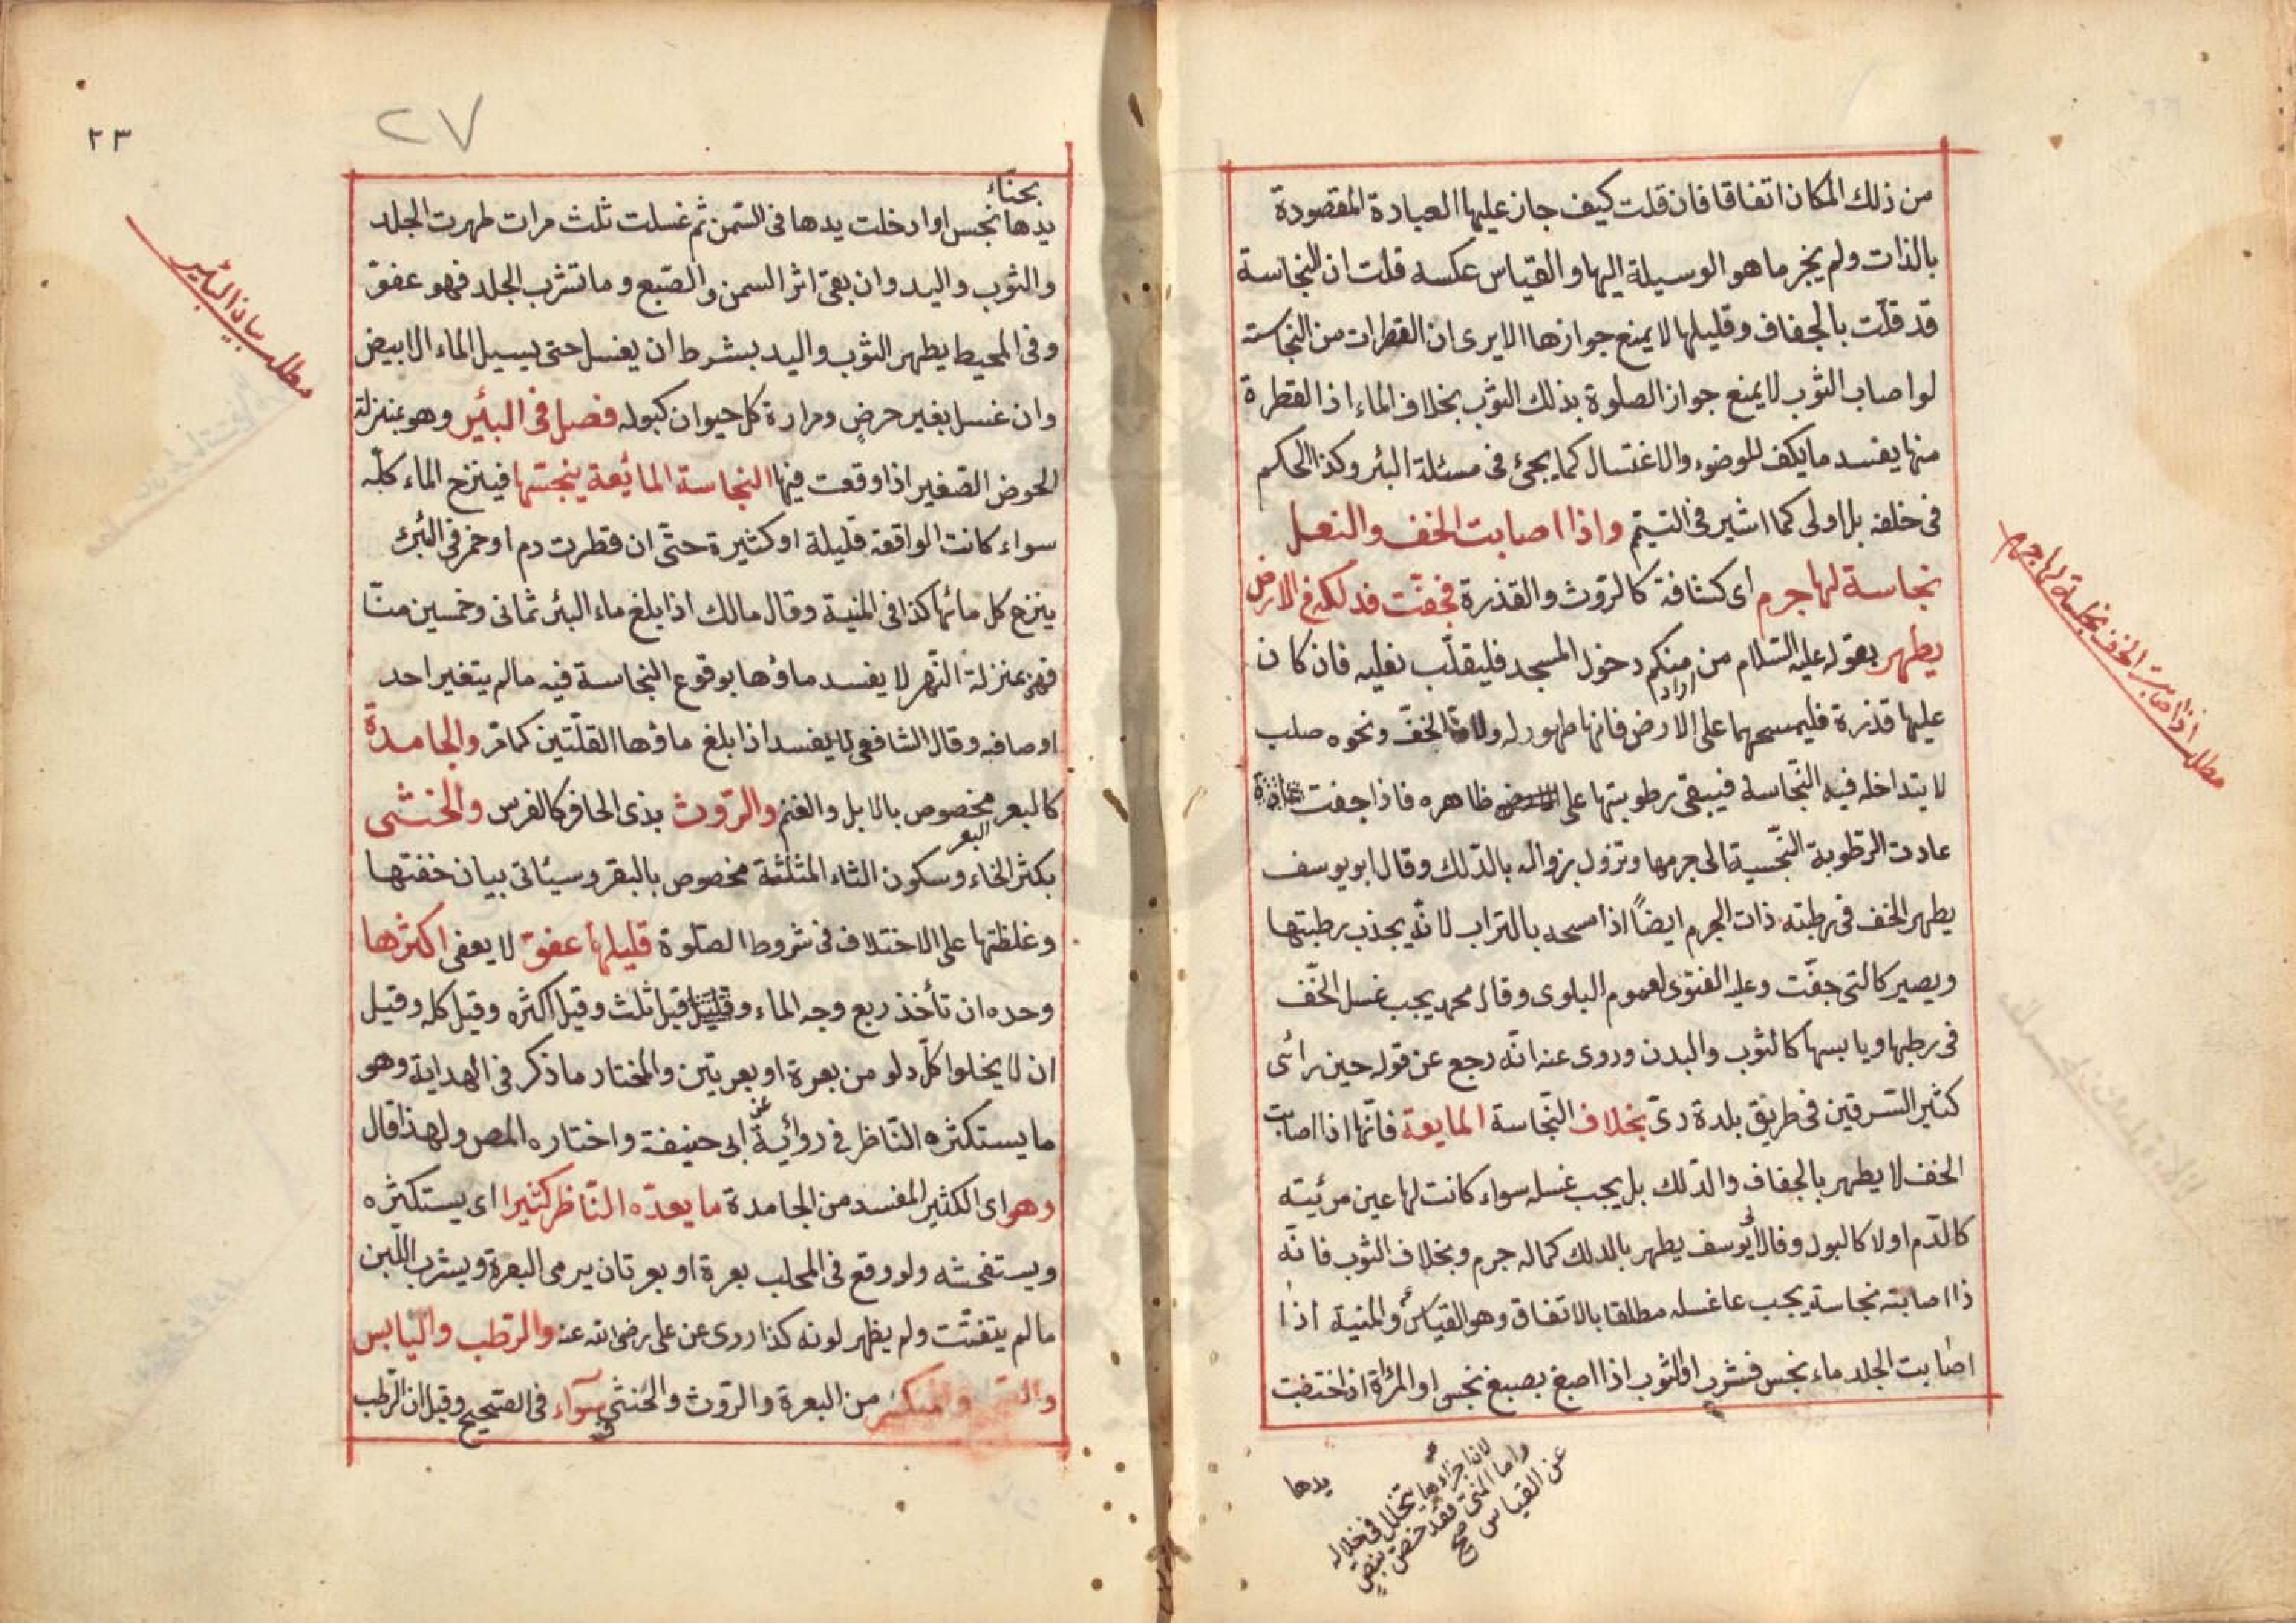 من ذلك المكان اتفاقا فان قلت كيف جاز عليها العبادة المقصودة
بالذات ولم يجز ما هو الوسيلة اليها والقياس عكسه قلت ان النجاسة
قد قلّت بالجفاف وقليلها لا يمنع جوازها الا يرى ان القطرات من النجاسة
لو اصاب الثوب لا يمنع جواز الصلوة بذلك الثوب بخلاف الماء اذ القطرة
منها يفسد ما يكف للوضوء والاغتسال كما يجئ فى مسئلة البئر وكذا الحكم
فى خلفه بل اولى كما اشير فى التيمّم واذا اصابت الخف والنعل
نجاسة لها جرم اى كثافة كالروث والقذرة فجفّت فدلكه فى الارض
يطهر بقوله عليه السّلام من اراد منكم دخول المسجد فليقلّب نعليه فان كان
عليها قذرة فليمسحهما على الارض فانها طهور له ولان الخفّ ونحوه صلب
لا يتداخله فيه النّجاسة فيبقى رطوبتها على ظاهره فاذا جفت
عادت الرّطوبة النّجسية الى جرمها وتزول بزواله بالدّلك وقال ابو يوسف
يطهر الخف فى رطبته ذات الجرم ايضاً اذا مسحه بالتراب لانّه يجذب رطبتها
ويصير كالتى جفّت وعليه الفتوى لعموم البلوى وقال محمد يجب غسل الخّف
فى رطبها ويابسها كالثوب والبدن وروى عنه انّه رجع عن قوله حين رائى
كثير السّرقين فى طريق بلدة رىّ بخلاف النّجاسة المايعة فانّها اذا اصابت
الخف لا يطهر بالجفاف والدّلك بل يجب غسله سواء كانت لها عين مرئيته
كالدّم اولا كالبول وقال ابو يوسف يطهر بالدلك كما له جرم وبخلاف الثوب فانّه
ذا اصابته نجاسة يجب عا غسله مطلقا بالاتفاق وهو القياس والمنية اذا
اصابت الجلد ماء نجس فتشرب او الثوب اذا اصبغ بصبغ نجس او المرأة اذا اختضبت
يدها
لان اجزاءها تتخلل فى خلاله
واما المنى فقد خصّ بنصّ
عن القياس صح
مطلب اذا اصابت الخف نجاسة لها جرم
٢٣
٢٧
بحنّاء
يدها نجس او ادخلت يدها فى السّمن ثم غسلت ثلث مرات طهرت الجلد
والثوب واليد وان بقى اثر السمن والصّبغ وما تشرب الجلد فهو عفوّ
وفى المحيط يطهر الثوب واليد بشرط ان يغسل حتى يسيل الماء الابيض
وان غسل بغير حرض ومرارة كل حيوان كبوله فصل فى البئير وهو بمنزلة
الحوض الصّغير اذا وقعت فيها النجاسة المائعة ينجستها فينزح الماء كلّه
سواء كانت الواقعة قليلة او كثيرة حتّى ان قطرت دم او خمر فى البئر
ينزح كل مائها كذا فى المنية وقال مالك اذا بلغ ماء البئر ثمانى وخمسين منّا
فهى بمنزلة النّهر لا يفسد ماؤها بوقوع النجاسة فيه مالم يتغير احد
اوصافه وقال الشافعى لا يفسد اذا بلغ ماؤها القلّتين كما مرّ والجامدة
كالبعر مخصوص بالابل والغنم والرّوث بذى الحافر كالفرس والخثى
البعر
بكثر الخاء وسكون الثاء المثلثة مخصوص بالبقر وسيئاتى بيان خفتها
وغلظتها على الاختلاف فى شروط الصلوة قليلها عفوّ لا يعفى اكثرها
وحده ان تأخذ ربع وجه الماء وقيل ثلث وقيل اكثره وقيل كله وقيل
ان لا يخلوا كلّ دلو من بعرة او بعرتين والمختار ما ذكر فى الهداية وهو
ما يستكثره النّاظر فى روايّة عن ابى حنيفة واختاره المص ولهذا قال
وهو اى الكثير المفسد من الجامدة ما يعدّه النّاظر كثيرا اى يستكثره
ويستفحشه ولو وقع فى المحلب بعرة او بعرتان يرمى البعرة ويشرب اللّبن
مالم يتفتّت ولم يظهر لونه كذا روى عن على رضى الله عنه والرّطب واليابس
والمنكسر من البعرة والرّوث والخثى سوآء فى الصّحيح وقيل ان الرّطب
مطلب بيان البئير